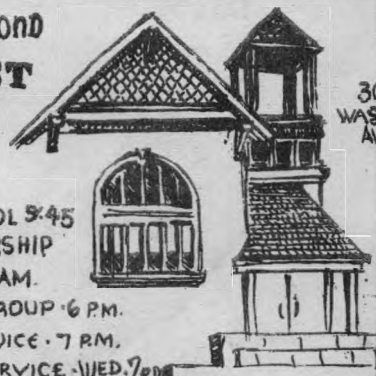 OND
ST
30
WAS
AV
OL 9:45
SHIP
AM.
ROUP · 6 P.M.
VICE · 7 P.M.
ERVICE · WED. 7